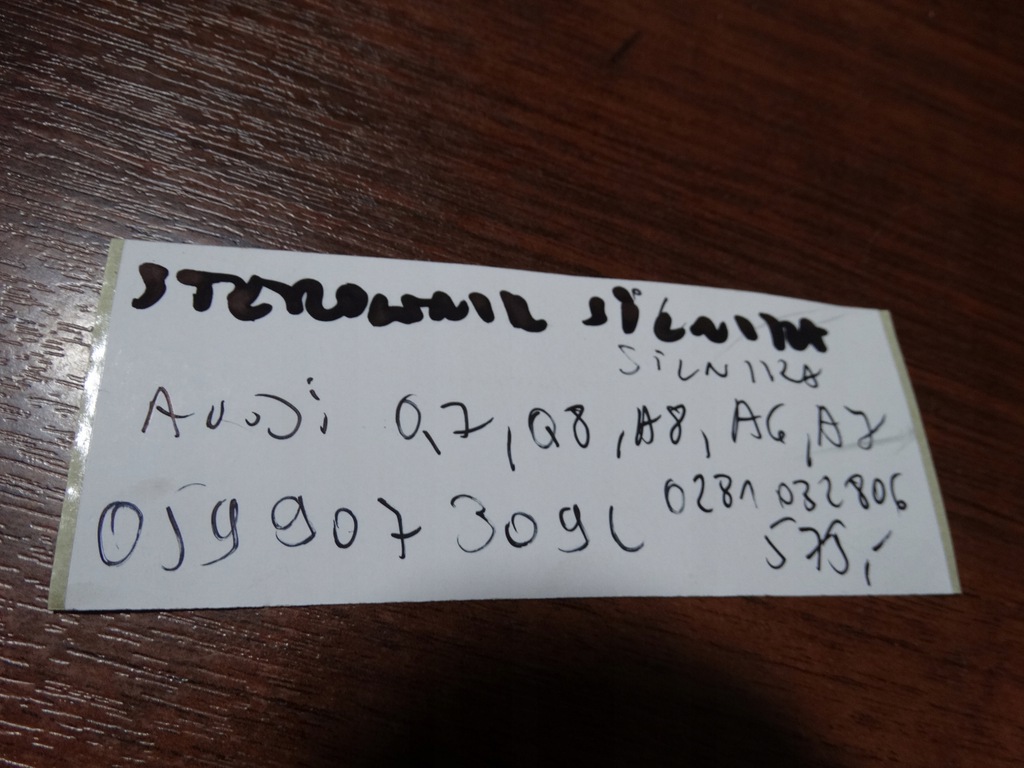 STEROWNIK SILNIKA
SILNIKA
AUDi Q7, Q8, A8, A6, A7
059 907 309C
0281 032 806
575,-